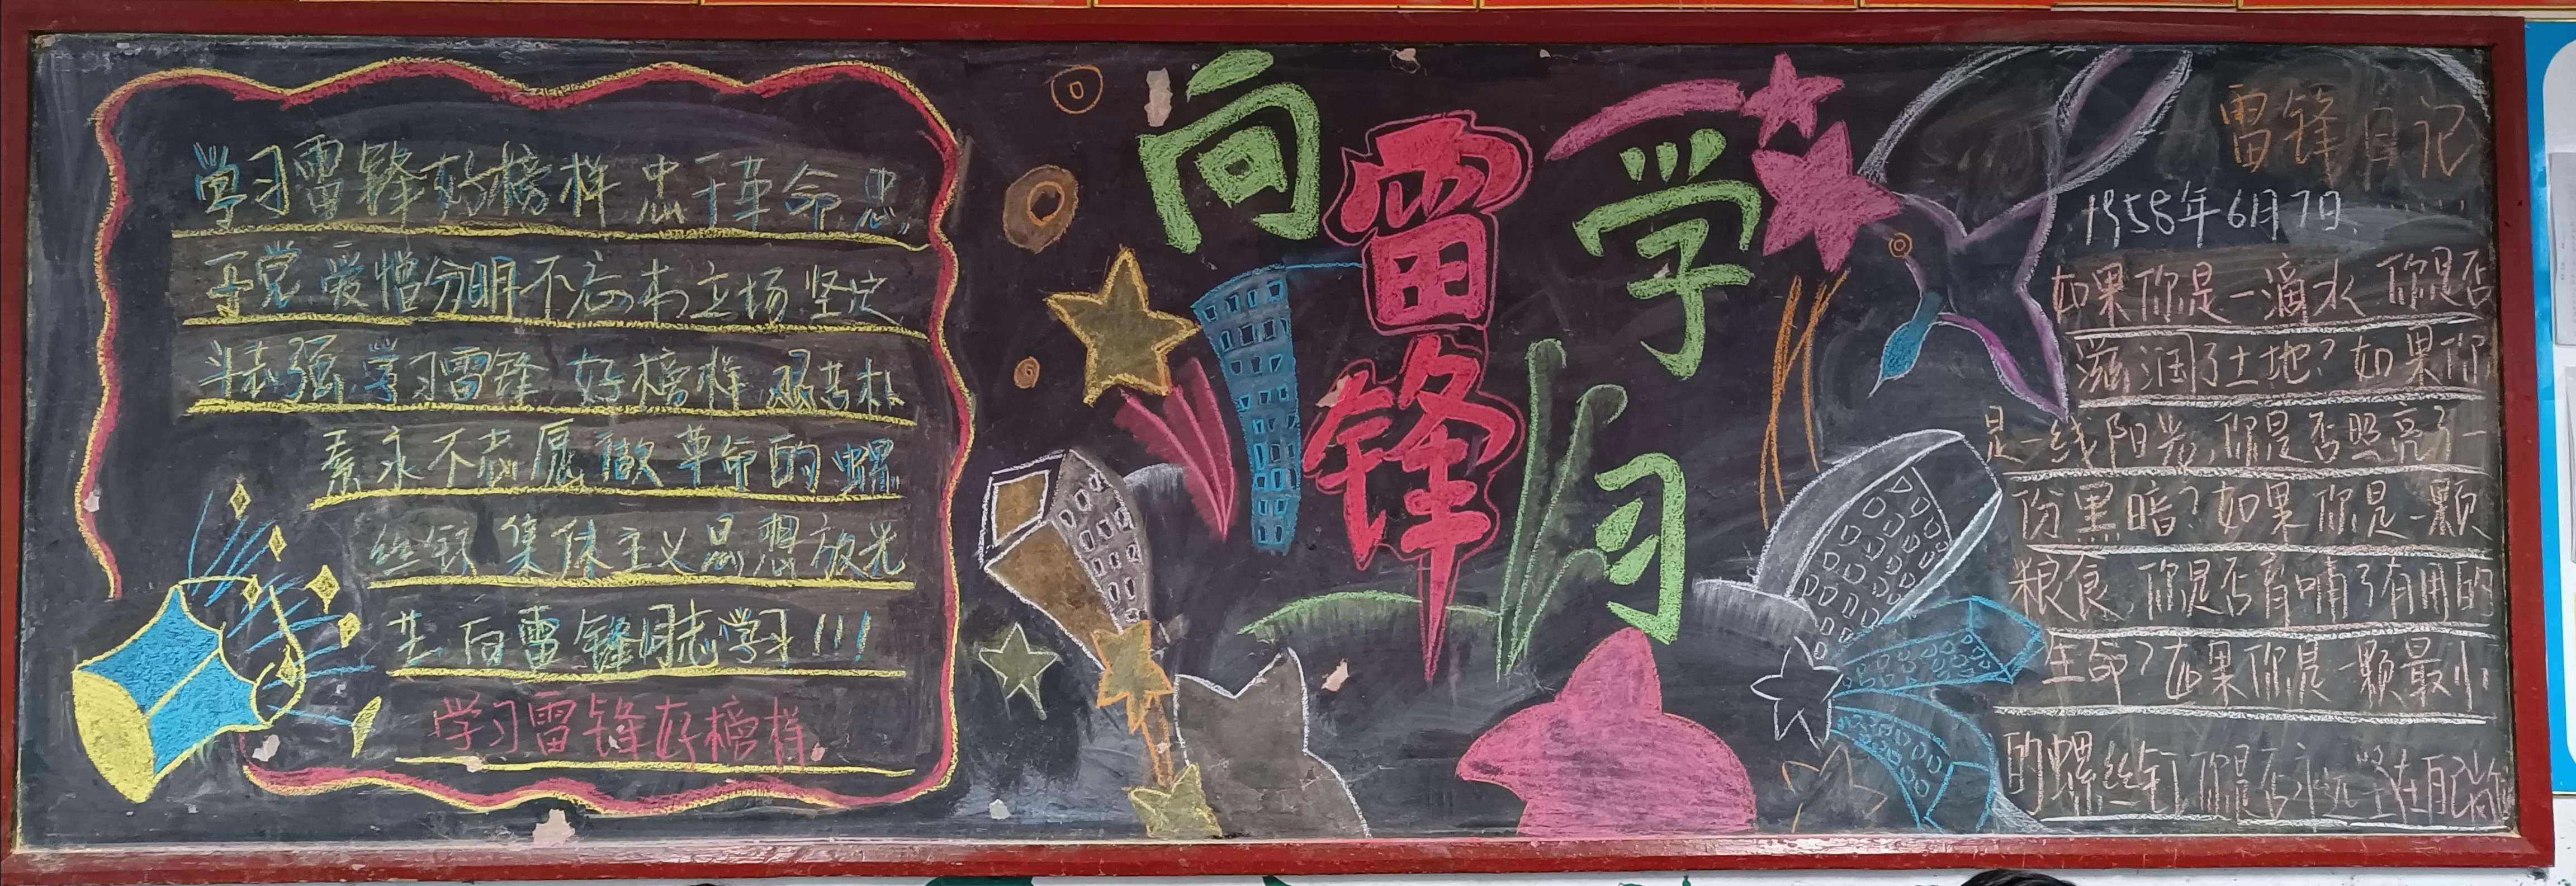 学习雷锋好榜样忠于革命忠
于党爱憎分明不忘本立场坚定
斗志强学习雷锋好榜样艰苦朴
素永不忘愿做革命的螺
丝钉集体主义思想放光
共向雷锋同志学习!!!
学习雷锋好榜样
向
雷锋
学习
雷锋日记
1958年6月7日
如果你是一滴水你是否
滋润了土地?如果你
是一线阳光,你是否照亮了一
份黑暗?如果你是一颗
粮食,你是否育哺了有用的
生命?如果你是一颗最小
的螺丝钉你是否永远坚在